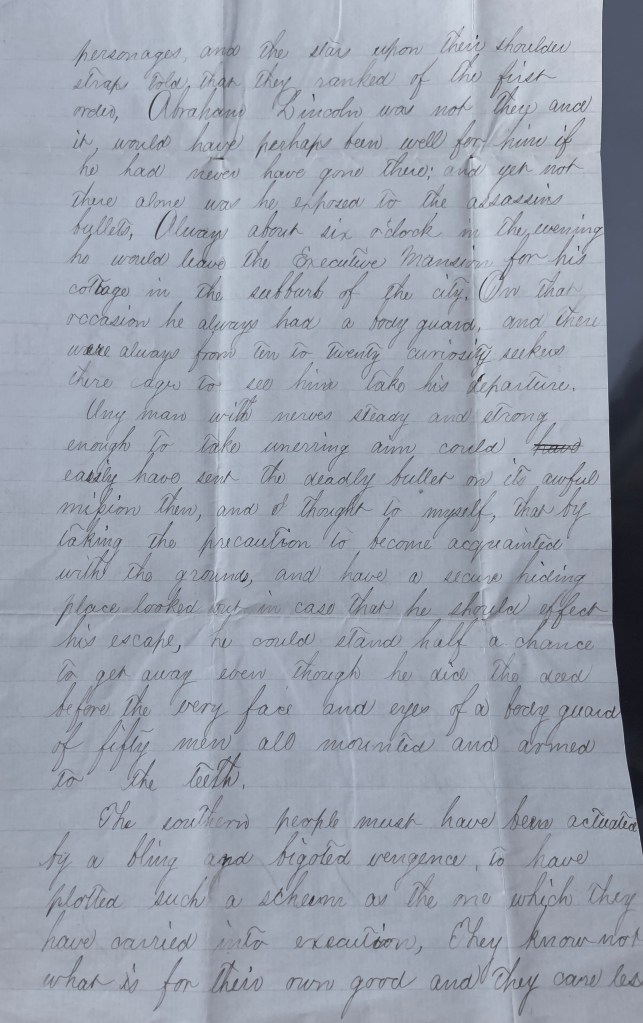 personages, and the stars upon their shoulder
straps told, that they ranked of the first
order, Abraham Lincoln was not they and
it, would have perhaps been well for him if
he had never have gone there; and yet not
there alone was he exposed to the assassins
bullets, Always about six o'clock in the evening
he would leave the Executive Mansion for his
cottage in the subburb of the city. On that
occasion he always had a body guard, and there
were always from ten to twenty curiosity seekers
there agr to see him take his departure.
Any man with nerves steady and strong
enough to take unerring aim could have
easily have sent the deadly bullet on its awful
mission then, and I thought to myself, that by
taking the precaution to become acquainted
with the grounds, and have a secure hiding
place looked out in case that he should effect
his escape, he could stand half a chance
to get away even though he did the deed
before the very face and eyes of a body guard
of fifty men, all mounted and armed
to the teeth.
The southern people must have been actuated
by a bling and bigoted vengence, to have
plotted such a scheem as the one which they
have carried into execution, They know not
what is for their own good and they care les